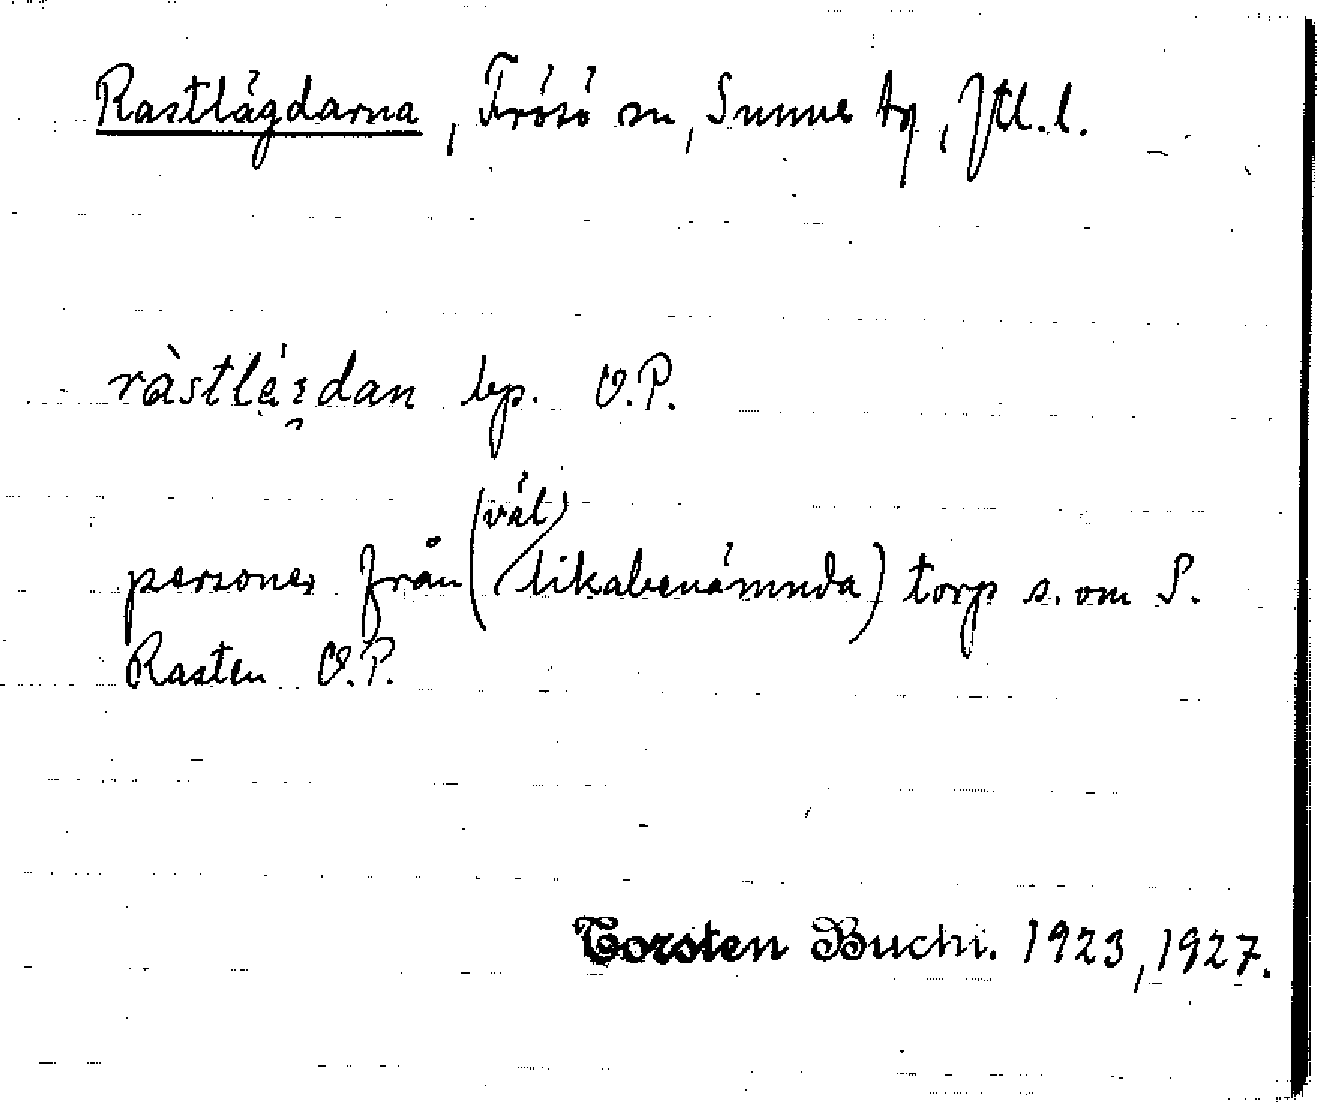 Rastlägdarna, Frösö sn, Sunne tg, Jtl. l.
ràstlä́gdan bp. O.P.
(väl)
personer från (likabenämnda) torp s. om S.
Rasten O.P.
Torsten Bucht. 1923, 1927.